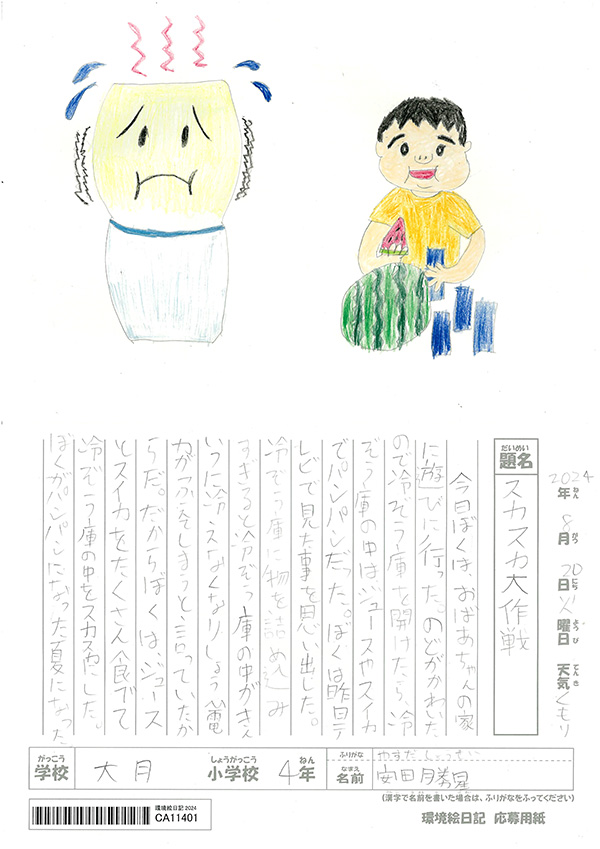 2024年ねん8月がつ20日にち火曜日ようび 天気てんきくもり
だいめい
題名
スカスカ大作戦
今日ぼくは、おばあちゃんの家
に遊びに行った。のどがかわいた
ので冷ぞう庫を開けたら、冷
ぞう庫の中はジュースやスイカ
でパンパンだった。ぼくは昨日テ
レビで見た事を思い出した。
冷ぞう庫に物を詰め込み
すぎると冷ぞう庫の中がきん
いつに冷えなくなりしょう電
力がふえてしまうと言っていたか
らだ。だからぼくは、ジュース
とスイカをたくさん食べて
冷ぞう庫の中をスカスカにした。
ぼくがパンパンになった夏になった
がっこう しょうがっこう ねん ふりがな やすだ
学校 大月 小学校 4年 なまえ 名前 安田
(漢字で名前を書いた場合は、ふりがなをふってください)
環境絵日記2024
CA11401
環境絵日記 応募用紙